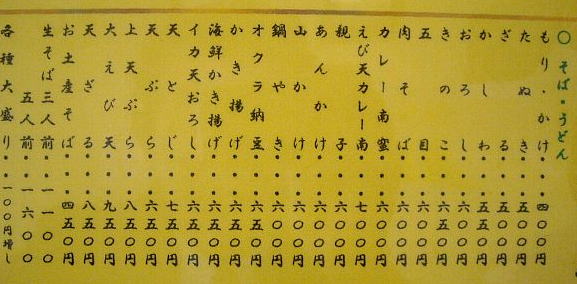 〇そば・うどん
もり・かけ・・・四〇〇円
たぬき・・・五五〇円
ざる・・・五五〇円
かしわ・・・五五〇円
おろし・・・六〇〇円
きのこ・・・六五〇円
五目・・・六〇〇円
肉そば・・・六〇〇円
カレー南蛮・・・六〇〇円
えび天カレー南・・・七〇〇円
親子・・・六〇〇円
あんかけ・・・六〇〇円
山かけ・・・六〇〇円
鍋やき・・・六〇〇円
オクラ納豆・・・六五〇円
かき揚げ・・・六五〇円
海鮮かき揚げ・・・六五〇円
イカ天おろし・・・六五〇円
天とじ・・・七五〇円
天ぷら・・・六五〇円
上天ぷら・・・八五〇円
大えび天・・・九五〇円
天ざる・・・八五〇円
お土産そば・・・四五〇円
生そば三人前・・一一〇〇
五人前・・一六〇〇
各種大盛り・・一〇〇円増し